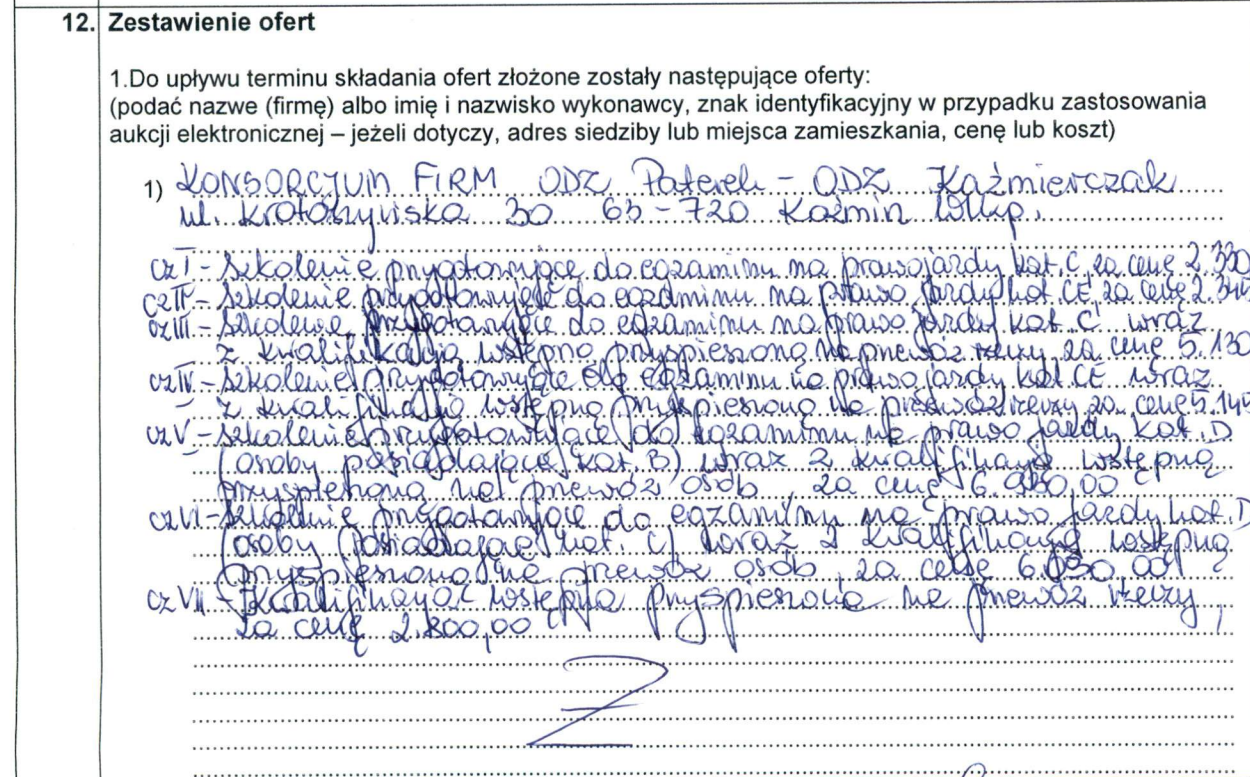 12. Zestawienie ofert
1.Do upływu terminu składania ofert złożone zostały następujące oferty:
(podać nazwe (firmę) albo imię i nazwisko wykonawcy, znak identyfikacyjny w przypadku zastosowania
aukcji elektronicznej – jeżeli dotyczy, adres siedziby lub miejsca zamieszkania, cenę lub koszt)
1) KONSORCJUM FIRM ODZ Paterek - ODZ Kaźmierczak
ul. Krotoszyńska 30 63-720 Koźmin Wlkp.
cz I - Szkolenie przygotowujące do egzaminu na prawo jazdy kat. C, za cenę 2.330
cz II - Szkolenie przygotowujące do egzaminu na prawo jazdy kat. CE, za cenę 2.345
cz III - Szkolenie przygotowujące do egzaminu na prawo jazdy kat. C wraz
z kwalifikacją wstępną przyspieszoną na przewóz rzeczy, za cenę 5.130
cz IV - Szkolenie przygotowujące do egzaminu na prawo jazdy kat. CE wraz
z kwalifikacją wstępną przyspieszoną na przewóz rzeczy za cenę 5.145
cz V - Szkolenie przygotowujące do egzaminu na prawo jazdy kat. D
(osoby posiadające kat. B) wraz z kwalifikacją wstępną
przyspieszoną na przewóz osób, za cenę
cz VI - Szkolenie przygotowujące do egzaminu na prawo jazdy kat. D
(osoby posiadające kat. C) wraz z kwalifikacją wstępną
przyspieszoną na przewóz osób, za cenę
cz VII - Kwalifikacja wstępna przyspieszona na przewóz rzeczy,
za cenę 2.800,00